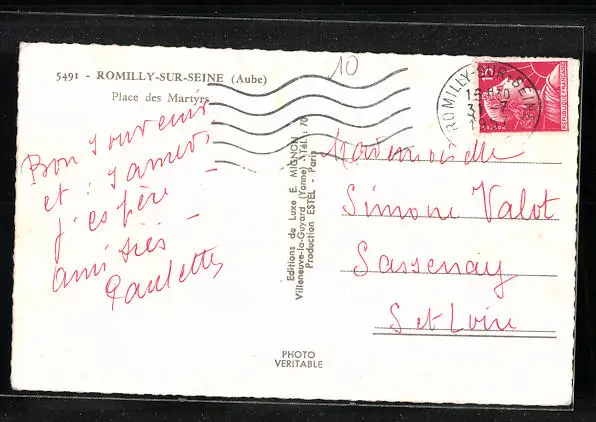 10
5491 - ROMILLY-SUR-SEINE (Aube)
Place des Martyrs
Bon souvenir
et : samedi
j'espère -
amitiés -
Paulette
Editions de Luxe E. MIGNON
Villeneuve-la-Guyard (Yonne) - Tél. : 70
Production ESTEL - Paris
PHOTO
VERITABLE
ROMILLY-SUR-SEINE
REPUBLIQUE FRANÇAISE
Mademoiselle
Simone Valot
Sassenay
S et Loire